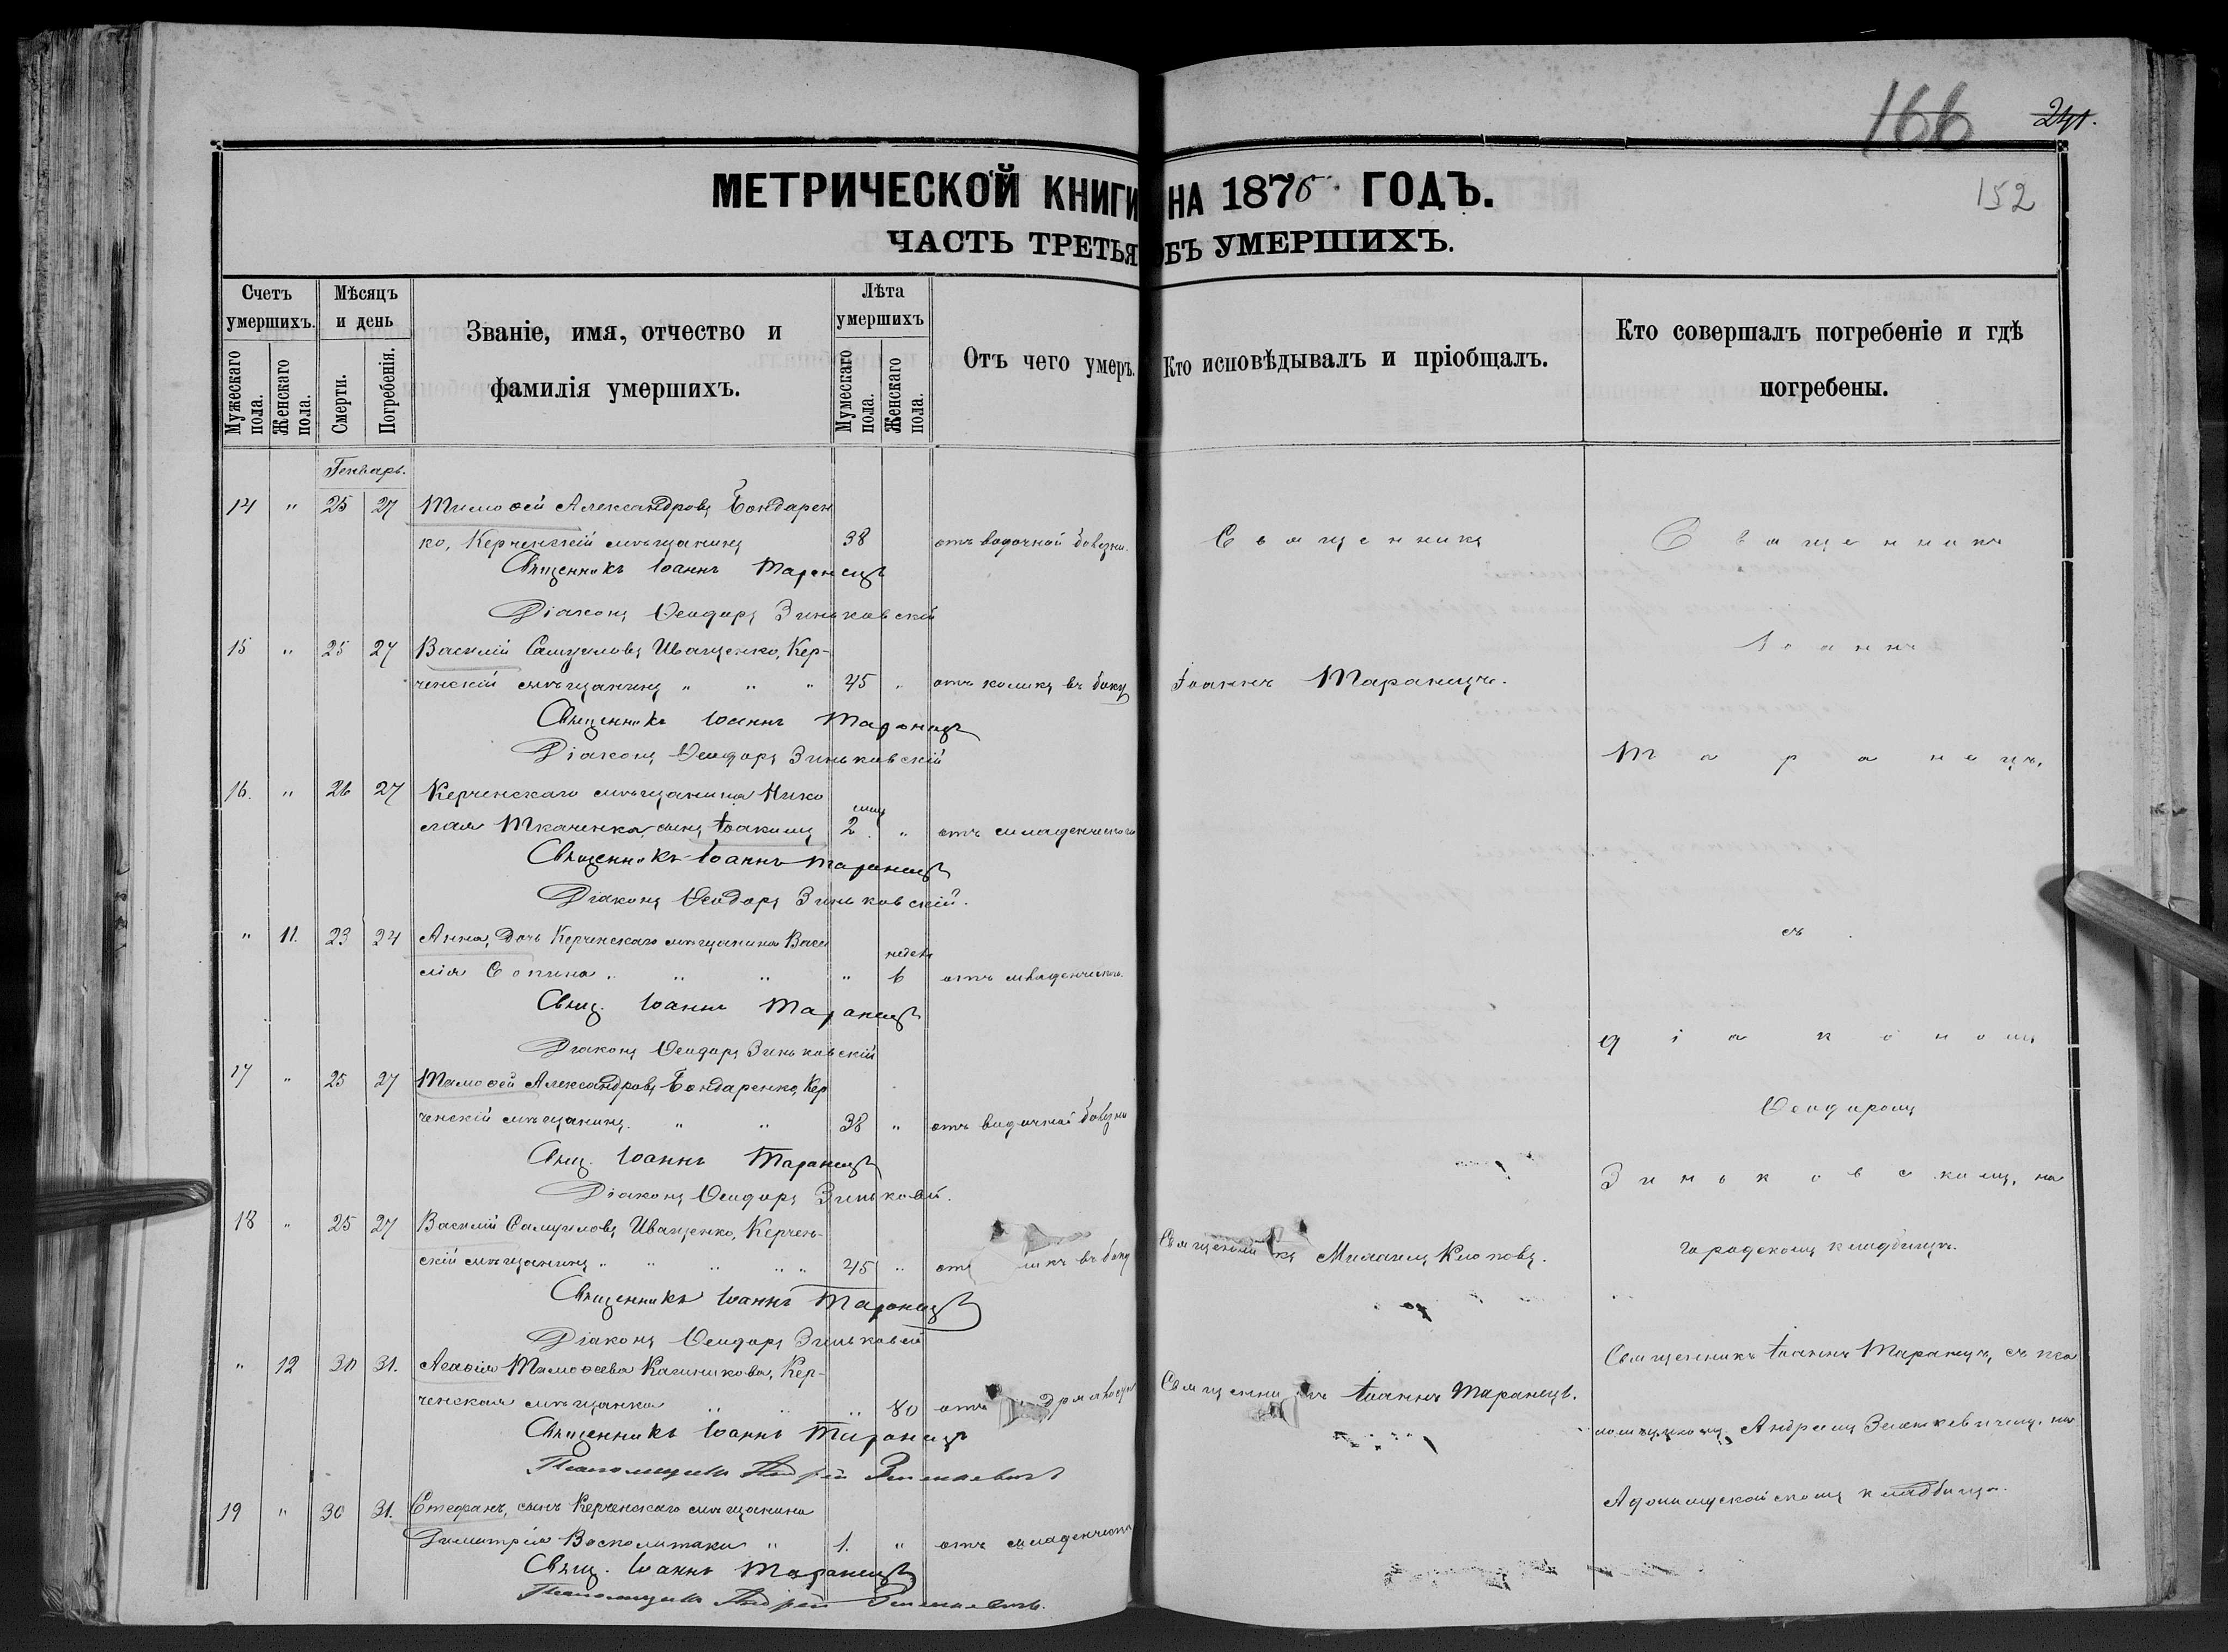 166 241.
МЕТРИЧЕСКОЙ КНИГИ НА 1876 ГОДЪ.
152
ЧАСТЬ ТРЕТЬЯ ОБЪ УМЕРШИХЪ.
Счетъ умершихъ.
Мужескаго пола.
Женскаго пола.
Мѣсяцъ и день
Смерти.
Погребенія.
Званіе, имя, отчество и
фамилія умершихъ.
Лѣта умершихъ
Мужескаго пола.
Женскаго пола.
Отъ чего умеръ.
Кто исповѣдывалъ и пріобщалъ.
Кто совершалъ погребеніе и гдѣ
погребены.
Генварь.
14 " 25 27 Тимоѳей Александровъ Бондарен
ко, Керченскій мѣщанинъ 38 отъ водочной болѣзни. Священникъ Священникъ
Священникъ Іоаннъ Таранецъ
Діаконъ Ѳеодоръ Зиньковскій
15 " 25 27 Василій Самуиловъ Иващенко, Кер- Іоаннъ
ченскій мѣщанинъ " " " 45 " отъ коликъ въ боку Іоаннъ Таранецъ.
Священникъ Іоаннъ Таранецъ
Діаконъ Ѳеодоръ Зиньковскій Таранецъ,
16. " 26 27 Керченскаго мѣщанина Нико
лая Ткаченка, сынъ Іоакимъ 2 " отъ младенческаго
Священникъ Іоаннъ Таранецъ
Діаконъ Ѳеодоръ Зиньковскій.
" 11. 23 24 Анна, дочь Керченскаго мѣщанина Васи недел съ
лія Сопина " " " " 6 отъ младенческаго.
Свящ. Іоаннъ Таранецъ
Діаконъ Ѳеодоръ Зиньковскій діакономъ
17 " 25 27 Тимоѳей Александровъ Бондаренко, Кер
ченскій мѣщанинъ. " " 38 " отъ водочной болѣзни Ѳеодоромъ
Свящ. Іоаннъ Таранецъ
Діаконъ Ѳеодоръ Зиньковскій. Зиньковскимъ, на
18 " 25 27 Василій Самуиловъ Иващенко, Керчен-
скій мѣщанинъ " " " " " 45 " отъ ликъ въ боку Священникъ Михаилъ Клоповъ. городскомъ кладбищѣ.
Священникъ Іоаннъ Таранецъ
Діаконъ Ѳеодоръ Зиньковскій
" 12 30 31. Агаѳія Тимоѳеева Калинкова, Кер- Священникъ Іоаннъ Таранецъ, съ пса
ченская мѣщанка " " " 80 отъ Священникъ Іоаннъ Таранецъ.
Священникъ Іоаннъ Таранецъ ломщикомъ Андреемъ на
Псаломщикъ Андрей
19 " 30 31. Стефанъ, сынъ Керченскаго мѣщанина кладбищѣ.
Димитрія " 1. " отъ младенческа
Свящ. Іоаннъ Таранецъ
Псаломщикъ Андрей